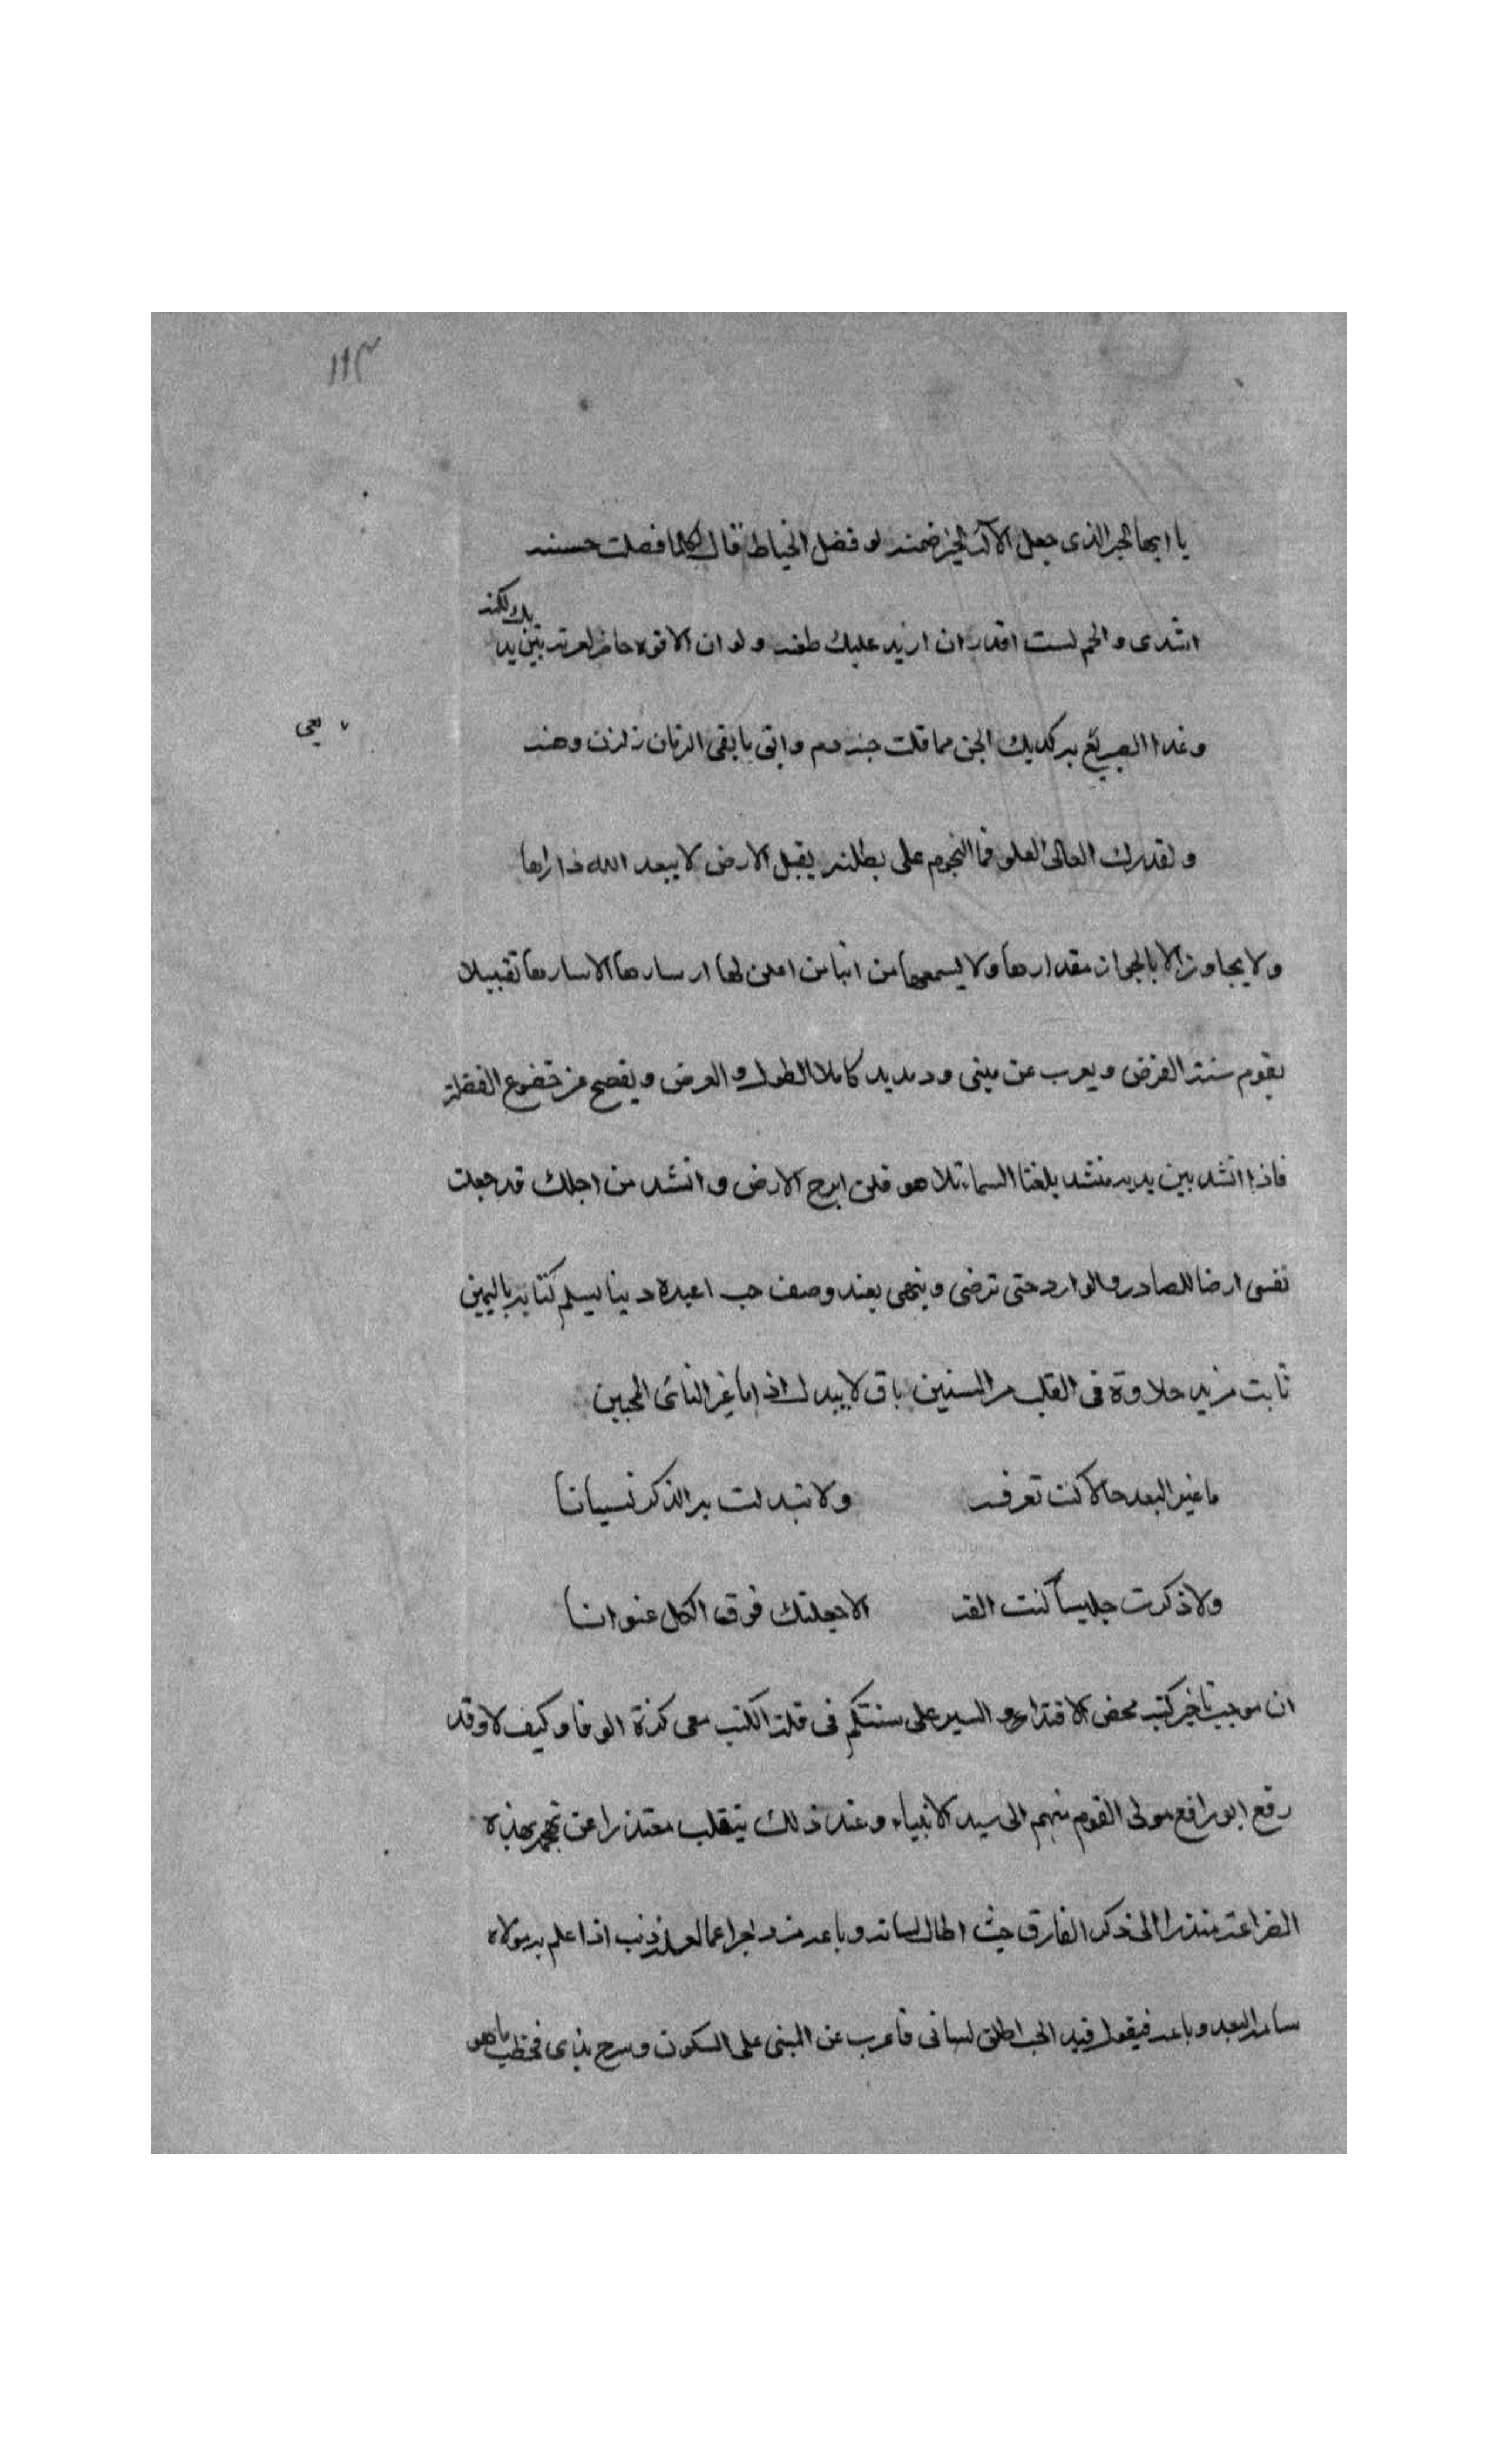 ١١٣
يا ايها الحبر الذى جعل الآله الخير ضمنه لو فضل الخياط قال لكلما فصلت حسنه
لست اقدر ان ازيد عليك طعنه ولو ان الافوه حاضر
بل لكنه
وغدا الصريع به كديك الجن مما قلت جنه
يحيى
ولقدرك العالى العلو فما النجوم على يطلنه يقبل الارض لا يبعد الله دارها
ولا يجاوز الا بالجوار مقدارها ولا يسمعها من انبا من اعلن لها الاسارها تقبيلا
يقوم سنة الفرض ويعرب عن مبنى ود مديد كاملا الطول والعرض ويفصح عن خضوع
فاذا انشد بين يديه منشد بلغنا السماء تلا هو فلن ابرح الارض وانشد من اجلك قد جعلت
نفسى ارضا للصادر والوارد حتى ترضى وينهى بعد وصف حب اعبده دينا ليسلم كتابه باليمين
ثابت مزيد حلاوة فى القلب مر السنين باق لا يبدل اذا ما غير الناى المحبين
ما غير البعد حالا كنت تعرفه ولا تبدلت بعد الذكر نسيانا
ولا ذكرت جليسا كنت الفه الا جعلتك فوق الكل عنوانا
ان موجب تاخير كتبه محض الاقتداء والسير على سنتكم فى قلة الكتب معى كثرة الوفا وكيف لا وقد
رفع ابو رافع مولى القوم منهم الى سيد الانبياء وعند ذلك ينقلب معتذرا عن بهذه
الضراعة الى ذكر الفارق حيث اطال لسانه وباعد اذا علم به مولاه
سامه البعد وباعده فيقول قيد الحب اطلق لسانى فاعرب عن المبنى على السكون وسرح ما هو